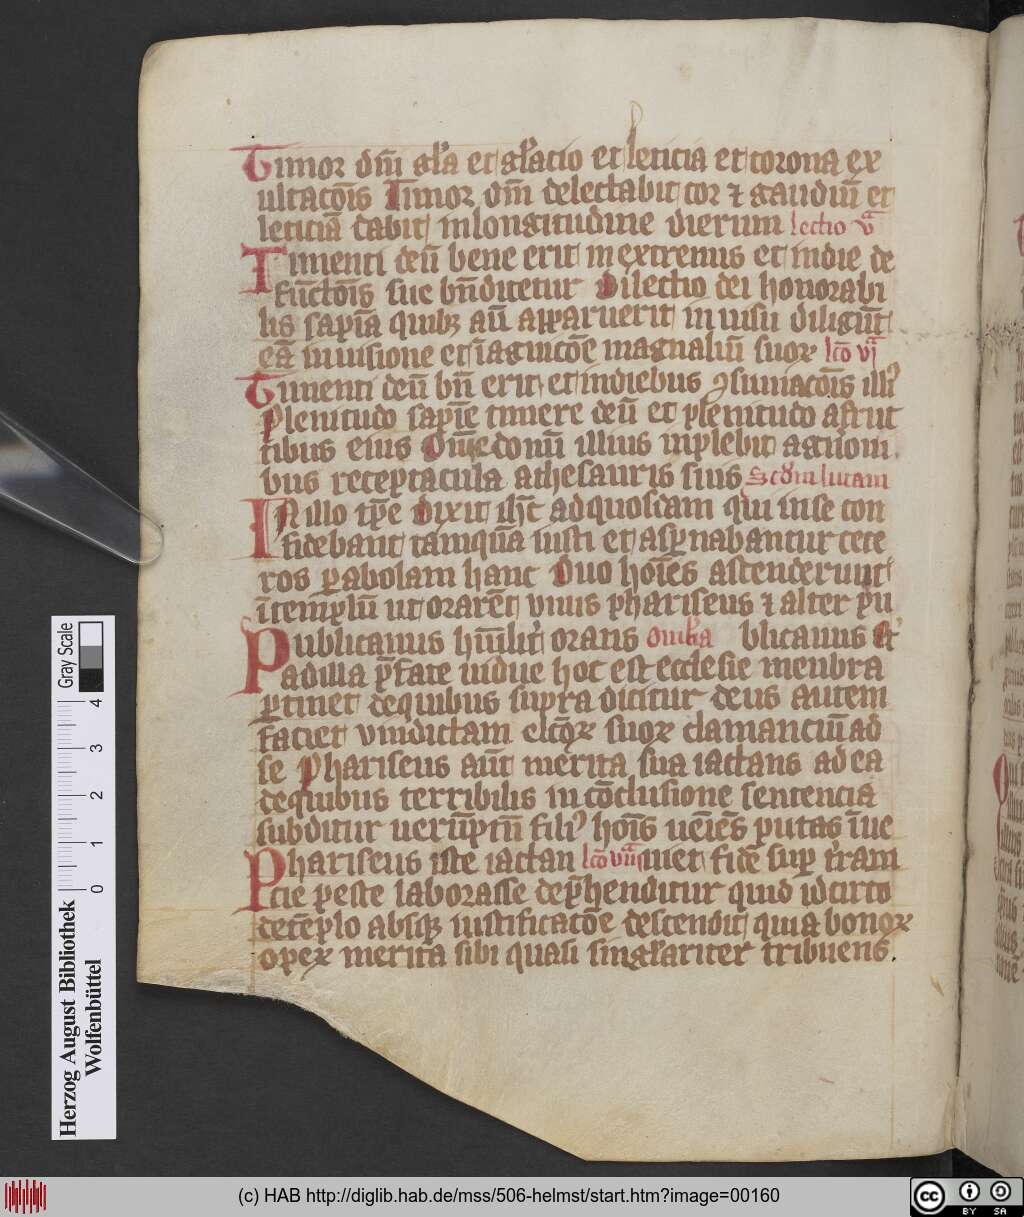 Timor dn̄i gl̄a et gl̄acio et leticia et corona ex
ultacōis Timor dn̄i delectabit cor ⁊ gaudiū et
leticiā dabit in longitudine dierum lectio va
Timenti deū bene erit in extremis et in die de
fūctōis sue bn̄dicetur Dilectio dei honorabi
lis sapīa quibꝫ aū apparuerit in uisu diligūt
eā in uisione et ī agnicōe magnaliū suoꝝ lc̄o vja
Timenti deū bn̄ erit et in diebus ꝯsumacōis illiꝰ
Plenitudo sapīe timere deū et plenitudo a fruc
tibus eius Om̄e domū illius inplebit a gn̄oni
bus receptacula a thesauris suis Scd̄m lucam
IN illo tp̄e dixit ih̄c ad quosdam qui in se con
fidebant tamquā iusti et asp̄nabantur cete
ros ꝑabolam hanc Duo hoīes ascenderunt
ī templū ut orarēt vnus phariseus ⁊ alter pu
Publicanus hūilit̄ orans om̄ka blicanus et̄
Padilla p̄fate uidue hoc est ecclesie menbra
ꝑtinet de quibus supra dicitur deus autem
faciet vindictam elc̄oꝝ suoꝝ clamanciū ad
se Phariseus aūt merita sua iactans ad ea
de quibus terribilis in cōclusione sentencia
subditur uerūptn̄ filiꝰ hoīs ueīēs putas īue
Phariseus iste iactan lc̄o viia niet fidē suꝑ t̄ram
cie peste laborasse dep̄henditur quid idcirco
de tēplo absqꝫ iustificacōe descendit quia bonoꝝ
opeꝝ merita sibi quasi singl̄ariter tribuens.
Gray Scale
4
3
2
1
0
Herzog August Bibliothek
Wolfenbüttel
(c) HAB http://diglib.hab.de/mss/506-helmst/start.htm?image=00160
cc BY SA